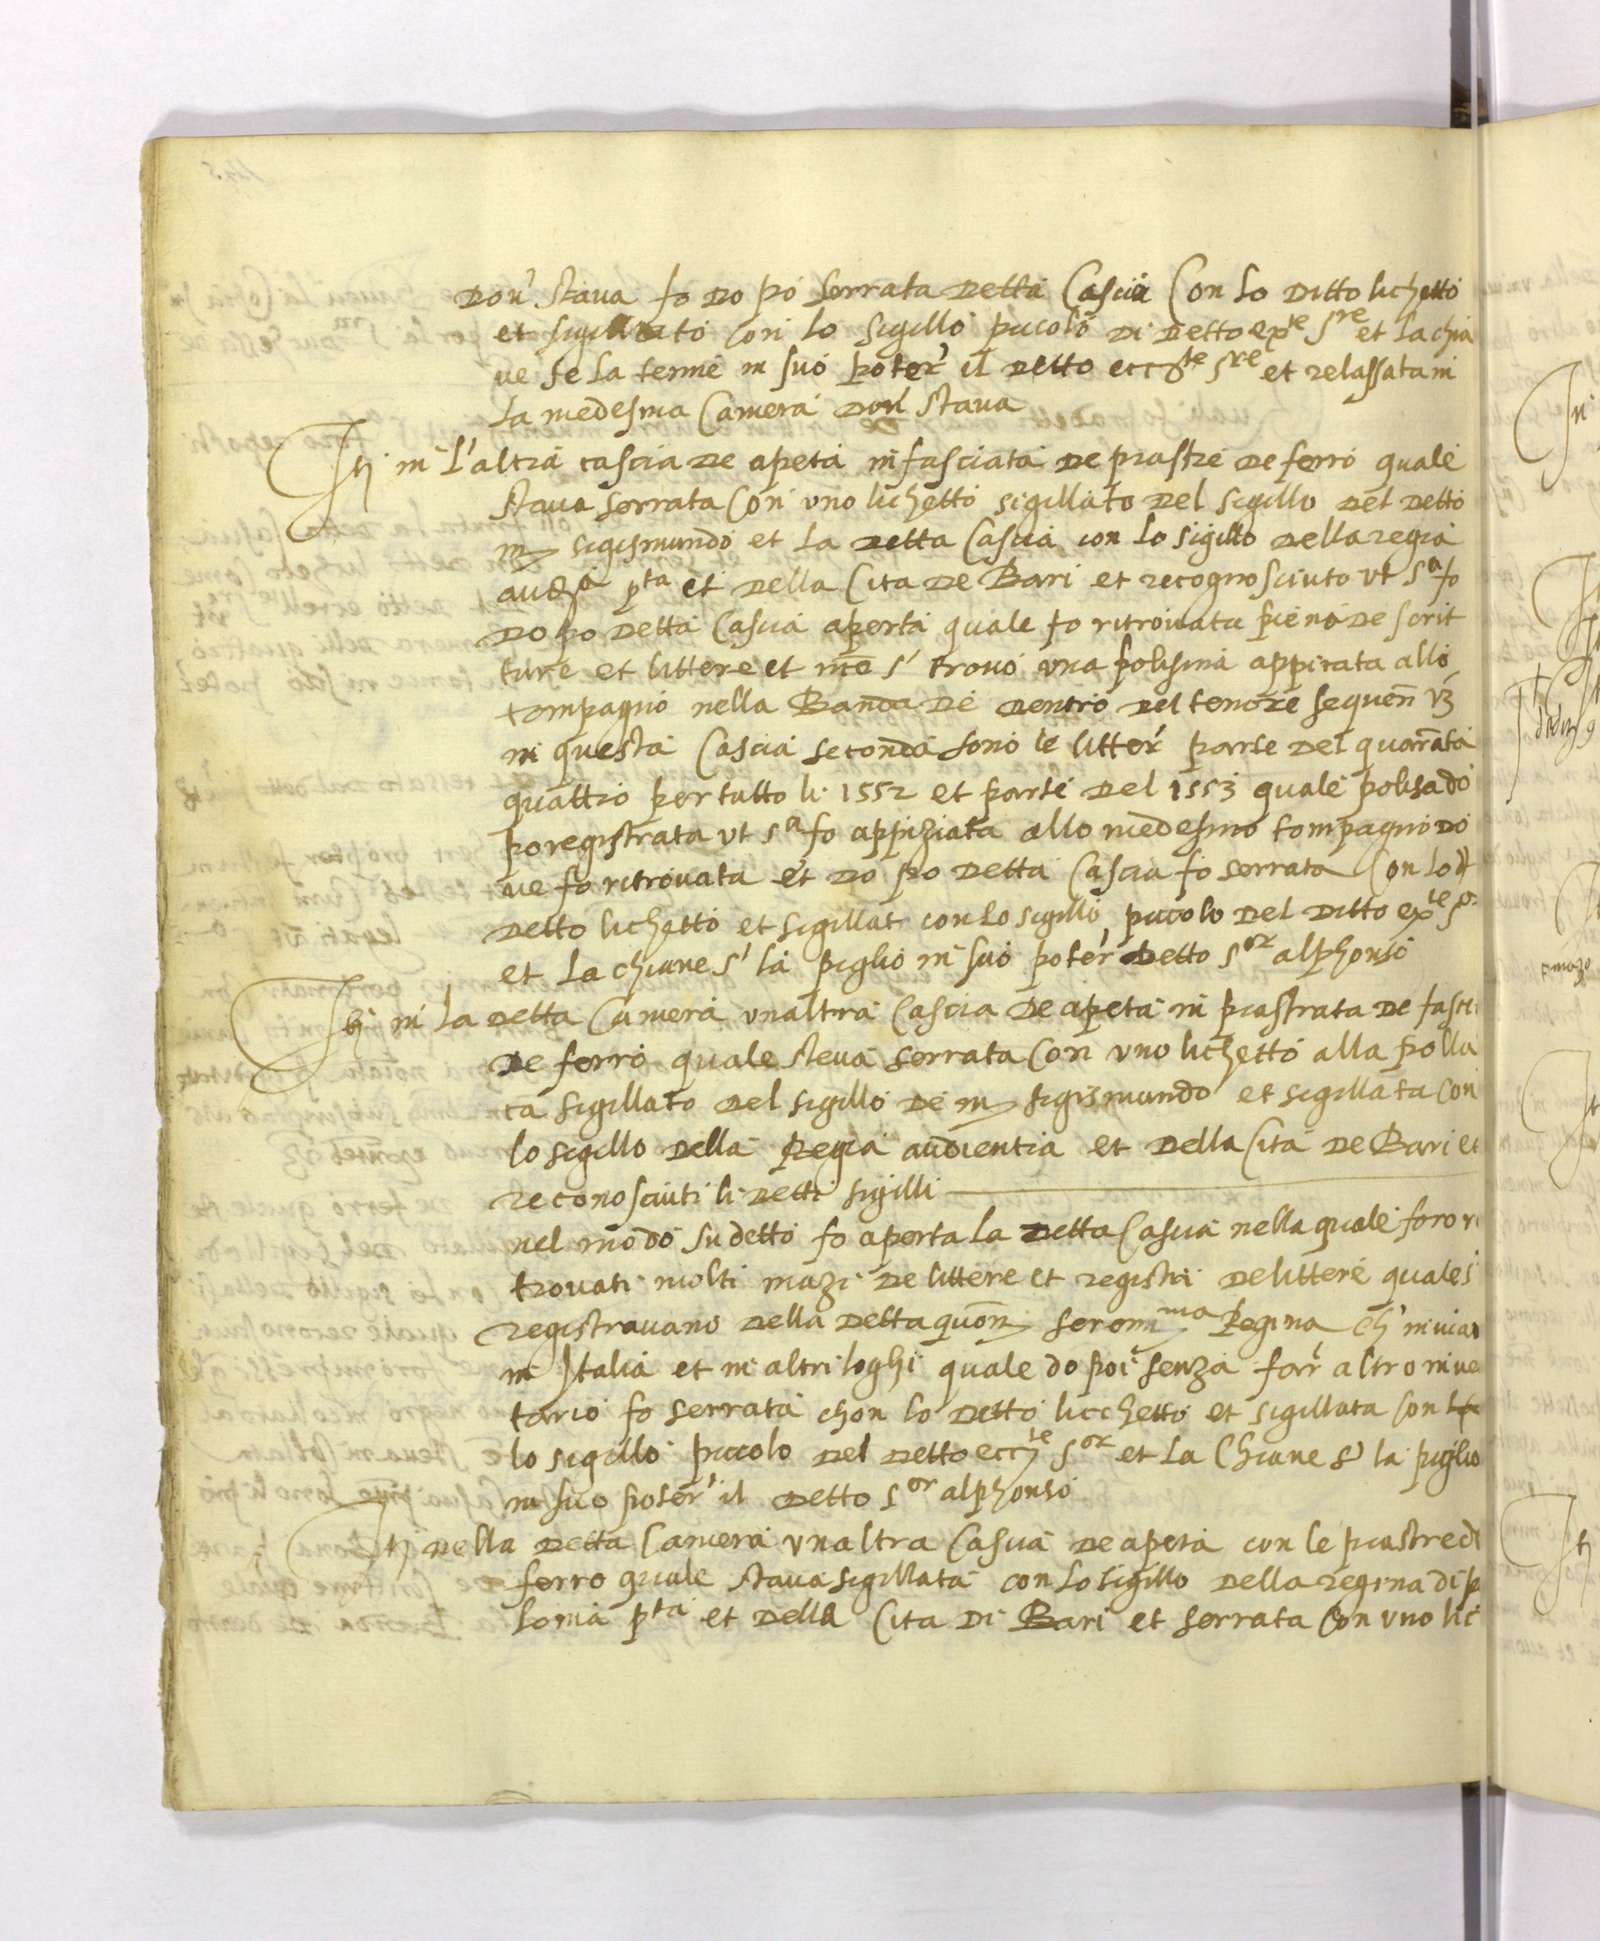 don' staua fo do po serrata detta Cascia Con lo ditto lichetto
et sigillato con lo sigillo picolo di detto exte sre et la chia
ue se la tenne in suo poter' il detto ecc.te sre et relassata in
la medesma Camera don' staua
Itj in l'altra cascia de apeta infasciata de piastre de ferro quale
staua serrata Con uno lichetto sigillato del sigillo del detto
m sigismundo et la detta Cascia con lo sigillo della regia
audza pta et della Cita de Bari et recognosciuto ut sa fo
do po detta Cascia aperta quale fo ritrouata piena de scrit
ture et littere et s' trouo una polisina appicata allo
tompagno nella Banda de dentro del tenore sequen vz
in questa Cascia seconda sono le litter' parte del quaranta
quattro per tutto li 1552 et parte del 1553 quale polisa do
po registrata ut sa fo appiziata allo medesmo tompagno do
ue fo ritrouata et do po detta Cascia fo serrata Con lo
detto lichetto et sigillat con lo sigillo picolo del ditto exte
et la chiaue s' la piglio in suo poter' detto sor alphonso
Itj in la detta Camera unaltra Cascia de apeta in piastrata de fasci
de ferro quale steua serrata Con uno lichetto alla polla
ca sigillato del sigillo de m sigismundo et sigillata con
lo sigillo della Regia audientia et della Cita de Bari et
reconosciuti li detti sigilli
nel modo su detto fo aperta la detta Cascia nella quale foro ri
trouati molti mazi de littere et registri de littere quale s
registrauano della detta quon serenma Regina ch' inuia
in Italia et in altri loghi quale do poi senza far' altro inue
tario fo serrata chon lo detto licchetto et sigillata con
lo sigillo picolo del detto ecc.te sor et la Chiaue s' la piglio
in suo poter' il detto sor alphonso
Itj nella detta Camera unaltra Cascia de apeta con le piastre de
ferro quale staua sigillata con lo sigillo della regina di p
lonia pta et della Cita di Bari et serrata Con uno lic